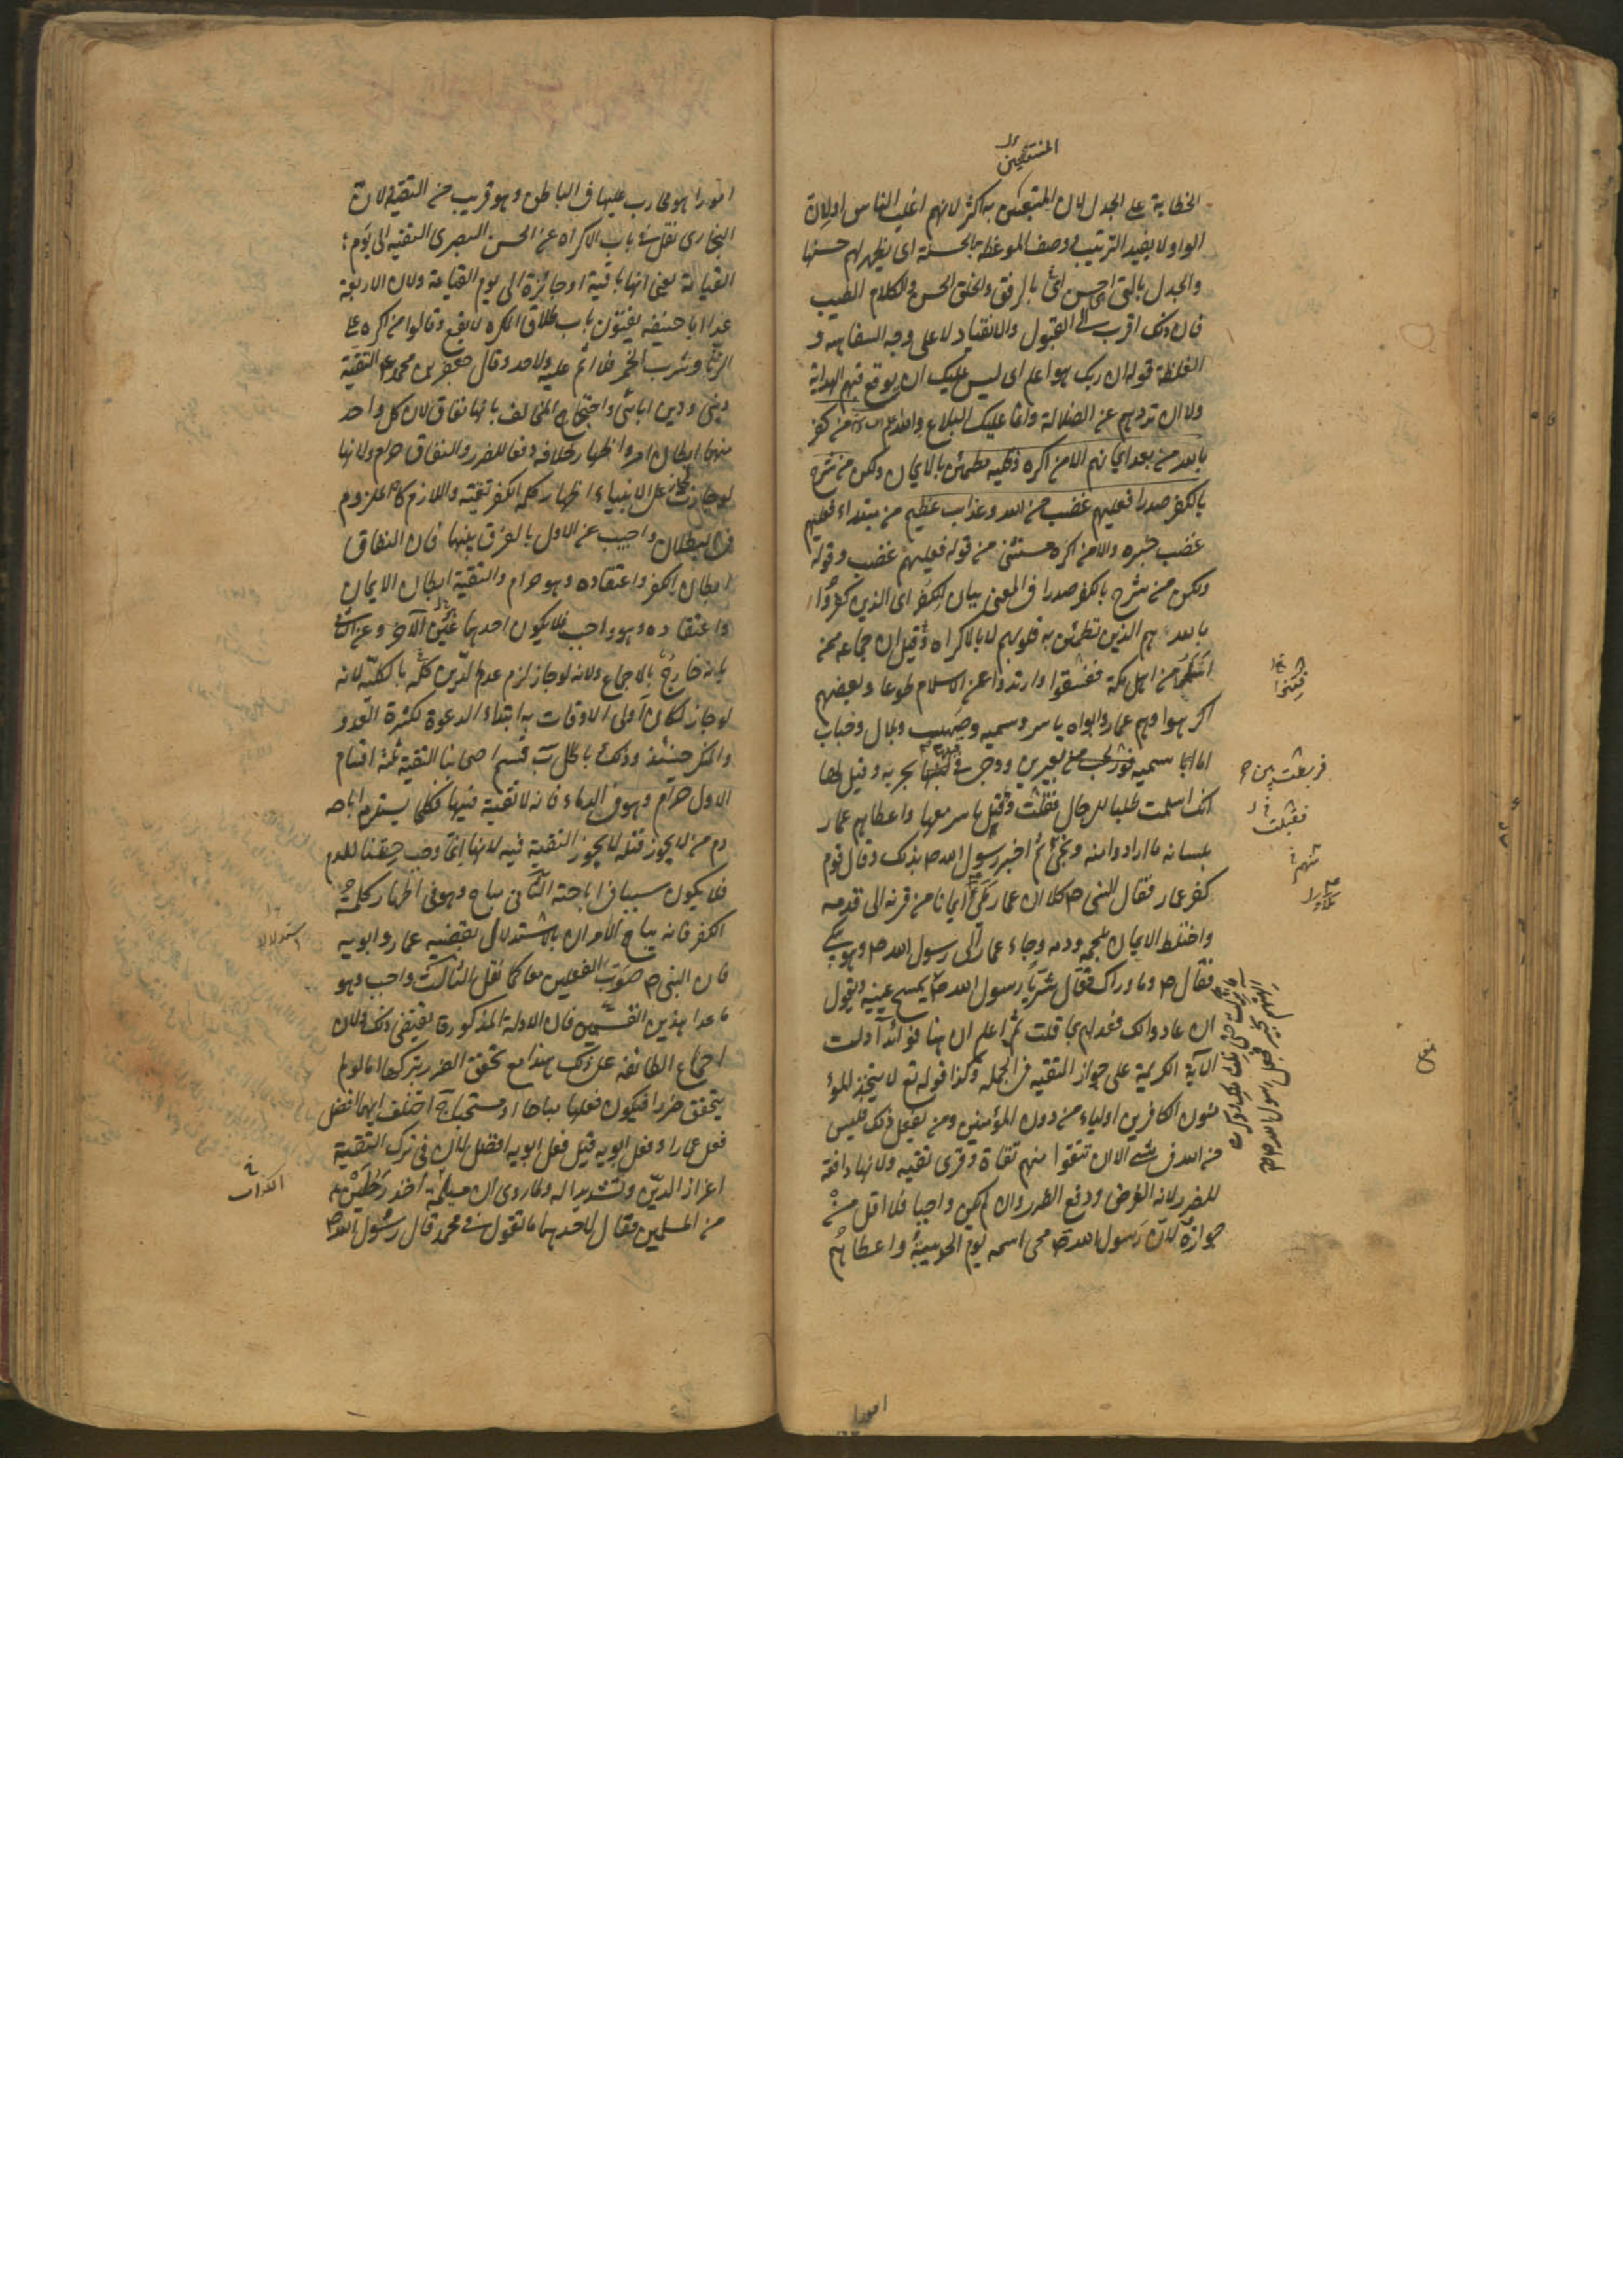 المنتفعين
الخطابة على الجدل لان المتبعين به اكثر لانهم اغلب الناس او لان
الواو لا يفيد الترتيب ووصف الموعظة بالحسنة اى يظهر لهم حسنها
والجدل بالتى احسن اى بالرفق والخلق الحسن والكلام الطيب
فان ذلك اقرب الى القبول والانقياد لا على وجه السفاهه و
الغلظة قوله ان ربك هو اعلم اى ليس عليك ان يوقع فيهم الهداية
ولا ان تردهم عن الضلالة وانما عليك البلاغ والله اعلم من كفر
بالله من بعد ايمانه الا من اكره وقلبه مطمئن بالايمان ولكن من شرح
بالكفر صدرا فعليهم غضب من الله وعذاب عظيم من مبتداء فعليهم
غضب خبره والا من اكره مستثنى من قوله فعليهم غضب وقوله
ولكن من شرح بالكفر صدرا فى المعنى بيان لكفر اى الذين كفروا
بالله هم الذين تطمئن به قلوبهم لا بالاكراه وقيل ان جماعه ممن
اسلم من اهل مكة ففسقوا وارتدوا عن الاسلام طوعا وبعضهم
اكرهوا وهم عمار وابواه ياسر وسميه وصهيب وبلال وخباب
اما سميه فربطت بين بعيرين ووجى فى قبلها بحربه وقيل لها
انك اسلمت طلبا للرجال فقتلت وقتل ياسر معها واعطاهم عمار
بلسانه ما ارادوا منه ونجى ثم اخبر رسول الله ص بذلك وقال قوم
كفر عمار فقال النبى ص كلا ان عمار ملئ ايمانا من قرنه الى قدمه
واختلط الايمان بلحمه ودمه وجاء عمار الى رسول الله ص وهو يبكى
فقال ص وما وراك فقال شر يا رسول الله ص يمسح عينيه ويقول
ان عادوا لك فعد لهم بما قلت ثم اعلم ان هنا فوائد آ دلت
الآية الكريمة على جواز التقيه فى الجمله وكذا قوله تع لا يتخذ المؤ
منون الكافرين اولياء من دون المؤمنين ومن يفعل ذلك فليس
من الله فى شىء الا ان تتقوا منهم تقاة وقرى تقيه ولانها دافعة
للضرر لانه الفرض ودفع الضرر وان لم يكن واجبا فلا اقل من
جوازه لان رسول الله ص محى اسمه يوم الحديبية واعطاهم
فتنوا
فربطت بين
فقتلت
منهم
امورا
امورا هو محارب عليها فى الباطن وهو قريب من التقية لان
البخارى نقل فى باب الاكراه عن الحسن البصرى التقيه الى يوم
القيامة يعنى انها باقية او جائزة الى يوم القيامة ولان الاربعة
عدا ابا حنيفه يفتون باب طلاق المكره لا يقع وقالوا من اكره على
الزنا وشرب الخمر فلا اثم عليه ولا حد وقال جعفر بن محمد ع التقية
دينى ودين آبائى واحتجاج المخالف بانها نفاق لان كل واحد
منهما ابطان امر واظهار خلافه دفعا للضرر والنفاق حرام ولانها
لو جازت لجاز على الانبياء اظهار كلمه الكفر تقية واللازم كالملزوم
فى البطلان واجيب عن الاول بالفرق بينهما فان النفاق
ابطان الكفر واعتقاده وهو حرام والتقية ابطان الايمان
واعتقاده وهو واجب فلا يكون احدهما عين الآخر وعن الثانى
بانه خارج بالاجماع ولانه لو جاز لزم عدم الدين كله بالكليه لانه
لو جاز لكان اولى الاوقات به ابتداء الدعوة لكثرة العدو
والمنكر حينئذ وذلك باطل ب قسم اصحابنا التقية ثلثة اقسام
الاول حرام وهو فى الدماء فانه لا تقية فيها فكلما يستلزم اباحه
دم من لا يجوز قتله لا يجوز التقية فيه لانها انما وجب حقنا للدم
فلا يكون سببا فى اباحته الثانى مباح وهو فى اظهار كلمة
الكفر فانه يباح الامران باستدلال بقضيه عمار وابويه
فان النبى ص صوب الفعلين معا كما نقل الثالث واجب وهو
ما عدا هذين القسمين فان الادلة المذكورة يقتضى ذلك ولان
اجماع الطائفة على ذلك هذا مع تحقق الضرر بتركها اما لو لم
يتحقق ضررا فيكون فعلها مباحا او مستحبا ج اختلف ايهما افضل
فعل عمار او فعل ابويه قيل فعل ابويه افضل لان فى ترك التقية
اعزاز الدين وتشديدا له ولما روى ان مسيلمة اخذ رجلين
من المسلمين فقال لاحدهما ما تقول فى محمد قال رسول الله ص
استدلالا
الكذاب